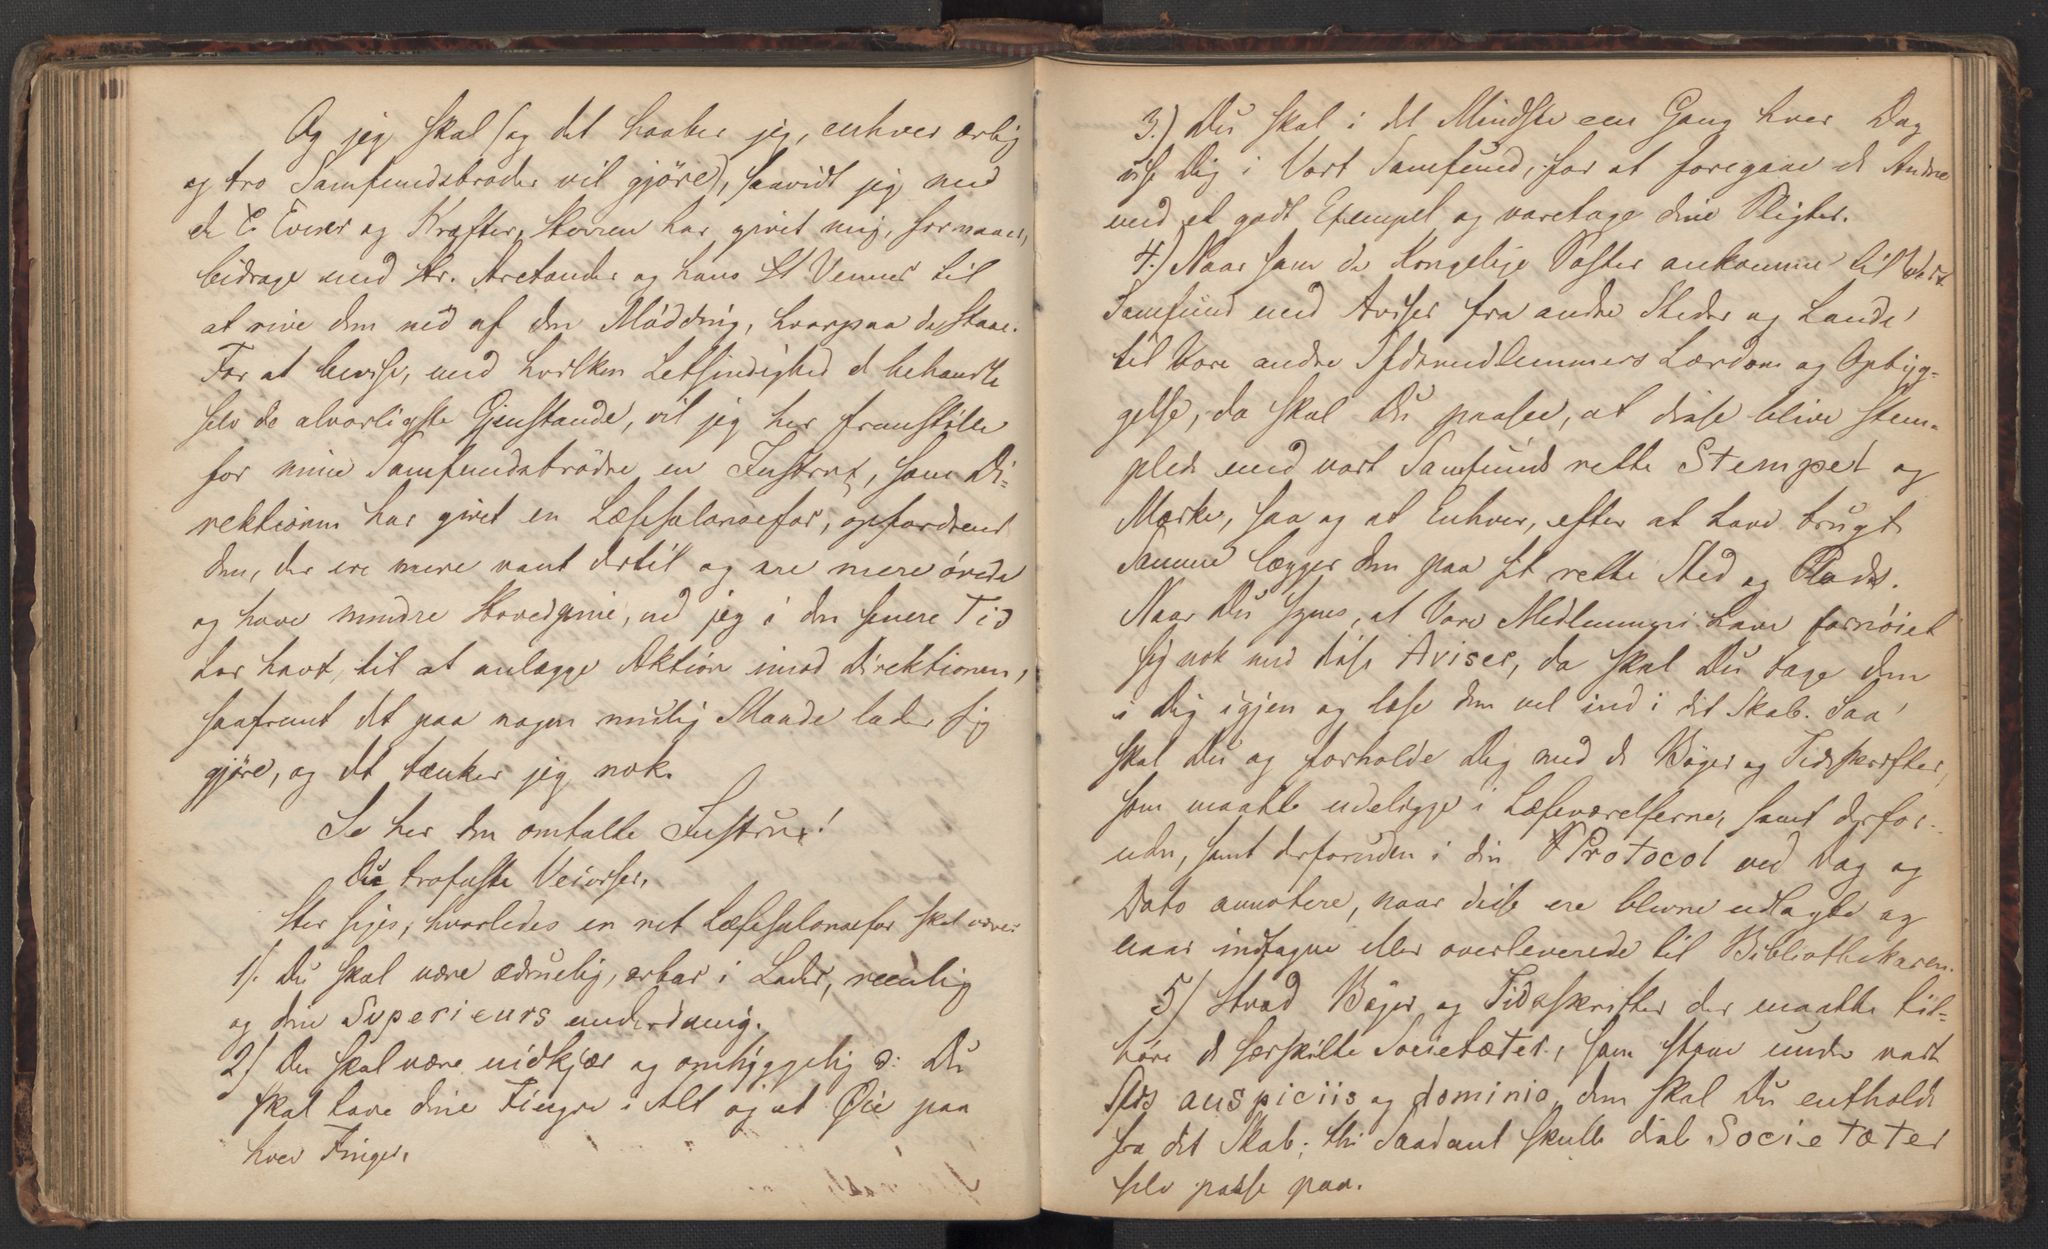 Og jeg skal (og det haaber jeg, enhver ærlig
og tro Samfundsbroder vil gjöre), saavidt jeg med
de Evner og Kræfter, Herren har givet mig, formaaer,
bidrage med Hr. Aretander og hans Venner til
at rive dem ned af den Mödding, hvorpaa de staae.
For at bevise, med hvilken Letsindighed de behandle
selv de alvorligste Gjenstande, vil jeg her fremstille
for mine Samfundsbrödre en Instrux, som Di-
rektionen har givet en Læsesalonsefor, opfordrende
dem, der ere mere vant dertil og ere mere övede
og have mindre Hovedpine, end jeg i den senere Tid
har havt, til at anlægge Aktion imod Direktionen,
saafremt det paa nogen mulig Maade lader sig
gjöre, og det tænker jeg nok.
Se her den omtalte Instrux!
Du trofaste Veiviser,
Her siges, hvorledes en ret Læsesalonsefor skal være:
1). Du skal være ædruelig, ærbar i Lader, reenlig
og dine Superieurs underdanig.
2) Du skal være nidkjær og omhyggelig ɔ: Du
skal have dine Fingre i Alt og et Øie paa
hver Finger.
3.) Du skal i det Mindste een Gang hver Dag
vise Dig i Vort Samfund, for at foregaae de Andre
med et godt Exempel og varetage dine Pligter.
4.) Naar som de Kongelige Poster ankomme til Vort
Samfund med Aviser fra andre Steder og Lande
til Vore andre Medlemmers Lærdom og Opbyg-
gelse, da skal Du paasee, at disse blive stem-
plede med vort Samfunds rette Stempel og
Mærke, saa og at Enhver, efter at have brugt
Samme lægger dem paa sit rette Sted og Plads.
Naar Du synes, at Vore Medlemmer have fornöiet
sig nok med disse Aviser, da skal Du tage dem
i Dig igjen og læse dem vel ind i dit Skab. Saa
skal Du og forholde Dig med de Böger og Tidsskrifter,
som maatte udeligge i Læseværelserne, samt derfor-
uden, samt derforuden i din Protocol ved Dag og
Dato annotere, naar disse ere blevne udlagte og
naar indtagne eller overleverede til Bibliothekaren.
5) Hvad Böger og Tidsskrifter der maatte til-
höre de særskilte Societæter, som staae under vort
auspiciis og dominio, dem skal Du entholde
fra dit Skab; thi Saadant skulle disse Societæter
selv passe paa.